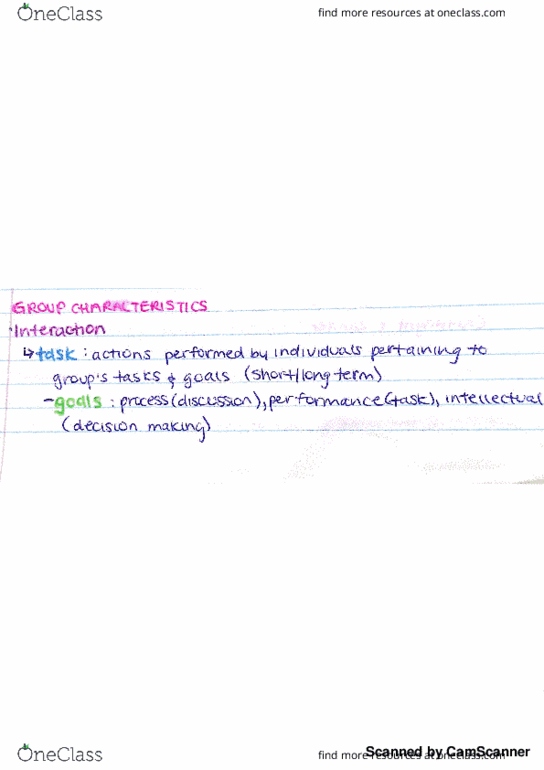 OneClass
find more resources at oneclass.com
GROUP CHARACTERISTICS
·Interaction
↳task: actions performed by individuals pertaining to
group's tasks & goals (short/long term)
-goals: process(discussion), performance(task), intellectual
(decision making)
OneClass
find more resources at oneclass.com
Scanned by CamScanner